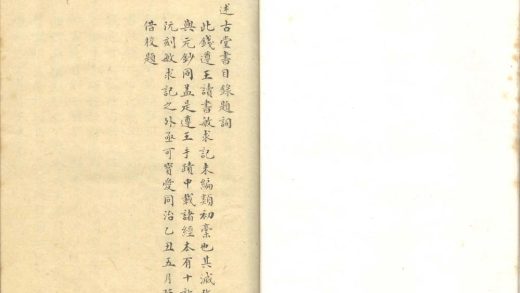 述古堂書目錄題詞
此錢遵王讀書敏求記未編類初稾也其減
與元鈔同蓋是遵王手蹟中載諸經本有十
沅刻敏求記之外亟可寶愛同治乙丑五月
借校題